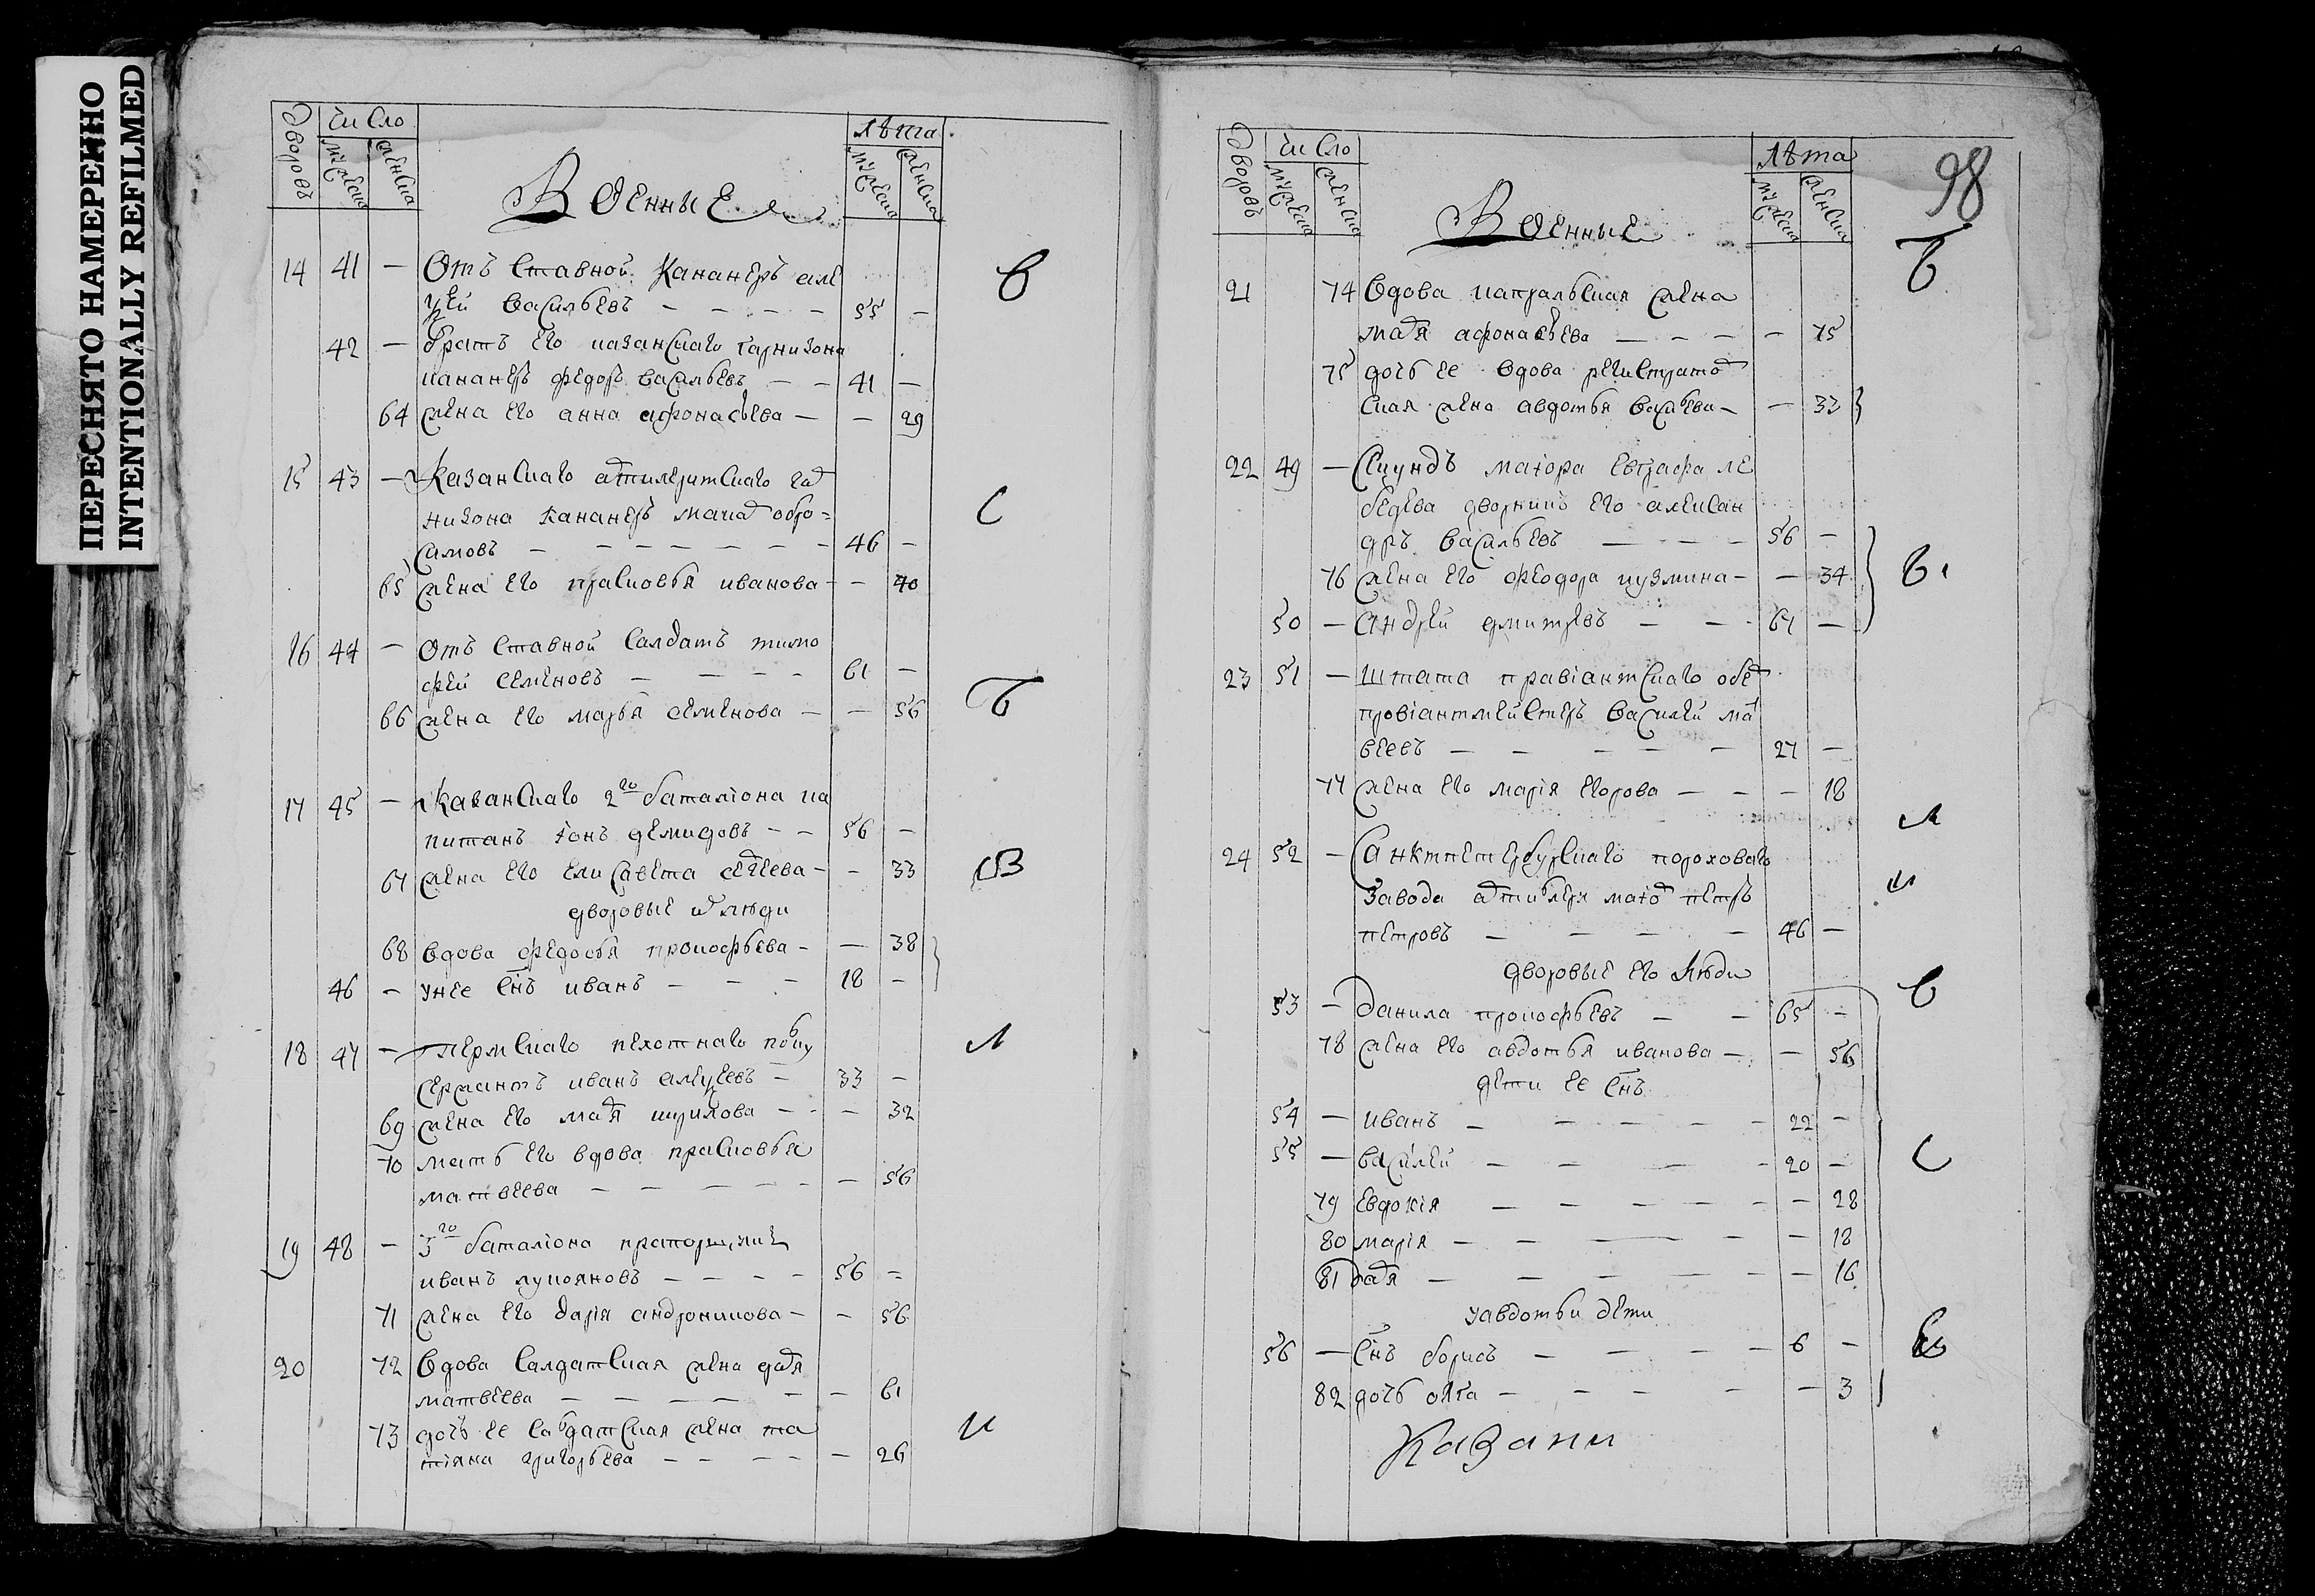 ПЕРЕСНЯТО НАМЕРЕННО
INTENTIONALLY REFILMED
дворовъ число лѣта
мужеска женска мужеска женска
Военные
14 41 — отъ ставной кананеръ але
ѯѣй васильевъ — — — — 55 —
42 — братъ его казанскаго гарнизона
кананеръ федоръ васильевъ — — 41 —
64 жена его анна афонасьева — — 29
15 43 — казанскаго артилеритскаго гар
низона кананеръ макар абро=
симовъ — — — — — — 46 —
65 жена его прасковья иванова — — 40
16 44 — отъ ставной салдатъ тимо
фей семеновъ — — — — 61 —
66 жена его марья семенова — — 56
17 45 — казанскаго 2го баталіона ка
питанъ іонъ демидовъ — — 56 —
67 жена его елисавета сергеева — — 33
дворовые их люди
68 вдова федосья прокофьева — — 38
46 — у нее снъ иванъ — — — 18 —
18 47 — пермскаго пехотнаго полку
сержантъ иванъ алеѯеевъ — 33 —
69 жена его марья кирилова — — — 32
70 мать его вдова прасковья
матвеева — — — — — — 56
19 48 — 3го баталіона прапорщикъ
иванъ лукояновъ — — — — 56 —
71 жена его дарія андроникова — — 56
20 72 вдова салдатская жена дарья
матвеева — — — — — — 61
73 дочь ее салдатская жена та
тіяна григорьева — — — — — 26
дворовъ число лѣта
мужеска женска мужеска женска
98
Военные
21 74 вдова капральская жена
марья афонасьева — — — — 75
75 дочь ее вдова регистратор
ская жена авдотья васильева — — 33
22 49 — секундъ маіора евграфа ле
бедева дворникъ его алексан
дръ васильевъ — — — 56 —
76 жена его феодора кузмина — — 34
50 — андрей дмитревъ — — — 67 —
23 51 — штата правіантскаго обер
провіантмейстеръ василей мат
веевъ — — — — — 27 —
77 жена его марія егорова — — — 18
24 52 — санктпетербургскаго пороховаго
завода артилерія маіор петръ
петровъ — — — — 46 —
дворовые его люди
53 — данила прокофьевъ — — 65 —
78 жена его авдотья иванова — — 56
дети ее снъ
54 — иванъ — — — — — 22 —
55 — василей — — — — — 20 —
79 евдокія — — — — — — 28
80 марія — — — — — — 18
81 дарья — — — — — — 16
у авдотьи дети
56 — снъ борисъ — — — — 6 —
82 дочь олга — — — — — 3
Казани